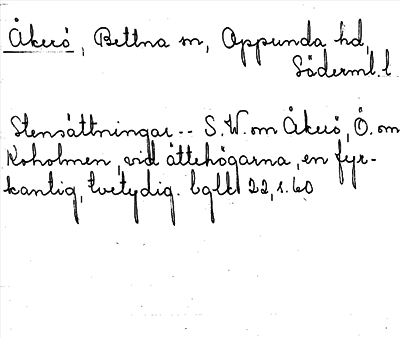 Åkerö, Bettna sn, Oppunda hd,
Söderml. l.
Stensättningar -- S.W. om Åkerö, Ö. om
Koholmen, vid ättehögarna, en fyr-
kantig, tvetydig. bglk 22, s. 60